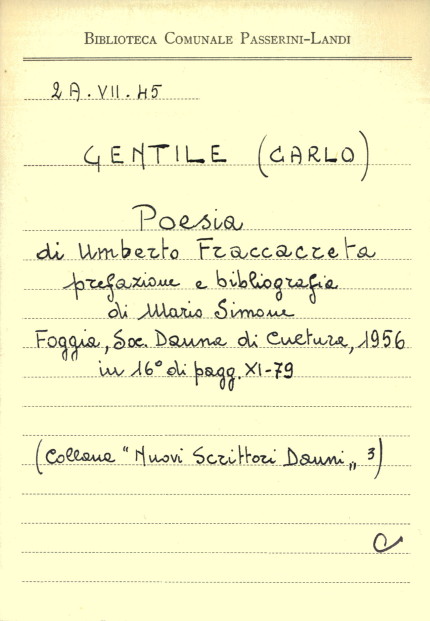 BIBLIOTECA COMUNALE PASSERINI-LANDI
2A.VII.45
GENTILE (CARLO)
Poesia
di Umberto Fraccacreta
prefazione e bibliografia
di Mario Simone
Foggia, Soc. Dauna di Cultura, 1956
in 16° di pagg. XI-79
(Collana "Nuovi Scrittori Dauni„ 3)
C